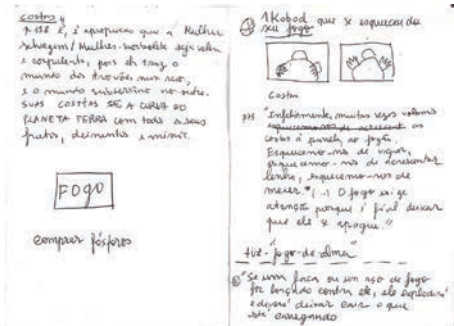 costas
p. 158 E, é apropriado que a Mulher
selvagem/Mulher-borboleta seja velha
e corpulenta, pois ela traz o
mundo dos trovões num seio,
e o mundo subterrâneo no outro.
SUAS COSTAS SÃO A CURVA DO
PLANETA TERRA com todos os seus
frutos, alimentos e animais.
FOGO
comprar fósforos
que se esqueceu do
seu fogo
Costas
"Infelizmente, muitas vezes voltamos
as
costas à panela, ao fogão.
Esquecemo-nos de vigiar,
esquecemo-nos de acrescentar
lenha, esquecemo-nos de
mexer." (...) O fogo exige
atenção porque é fácil deixar
que ele se apague."
"fogo-da-alma"
"Se uma faca ou um aço de fogo
for lançado contra ele, ele explodirá
e deixar cair o que
está carregando